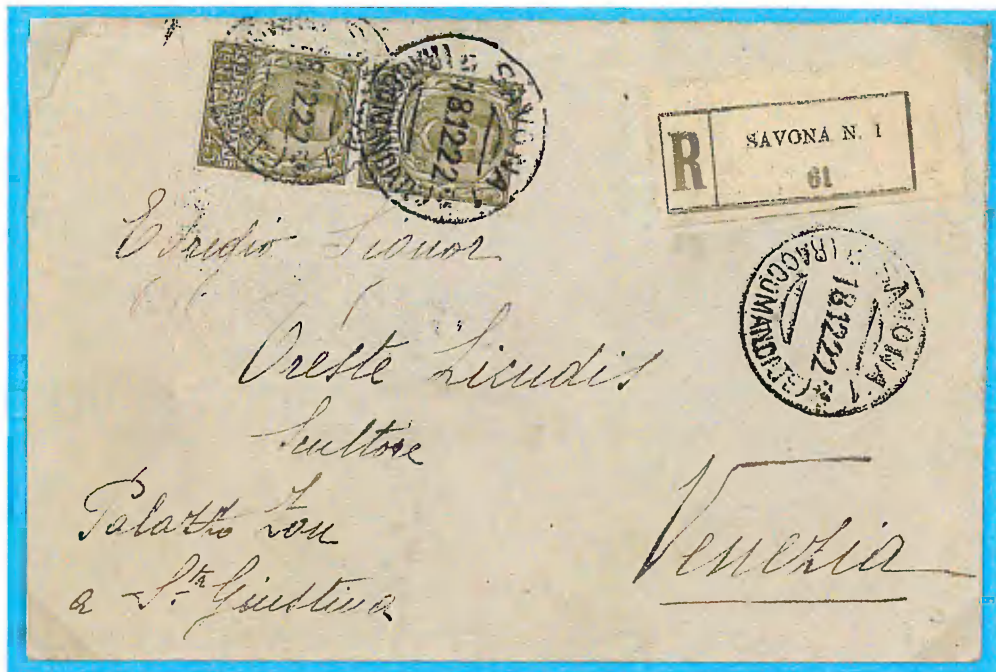 SAVONA 1
18 12 22
(RACCOMANDATE)
R
SAVONA N. 1
61
SAVONA 1
18 12 22
(RACCOMANDATE)
Egregio Signor
Oreste Licudis
Scultore
Palazzo Zon
a S.ta Giustina
Venezia